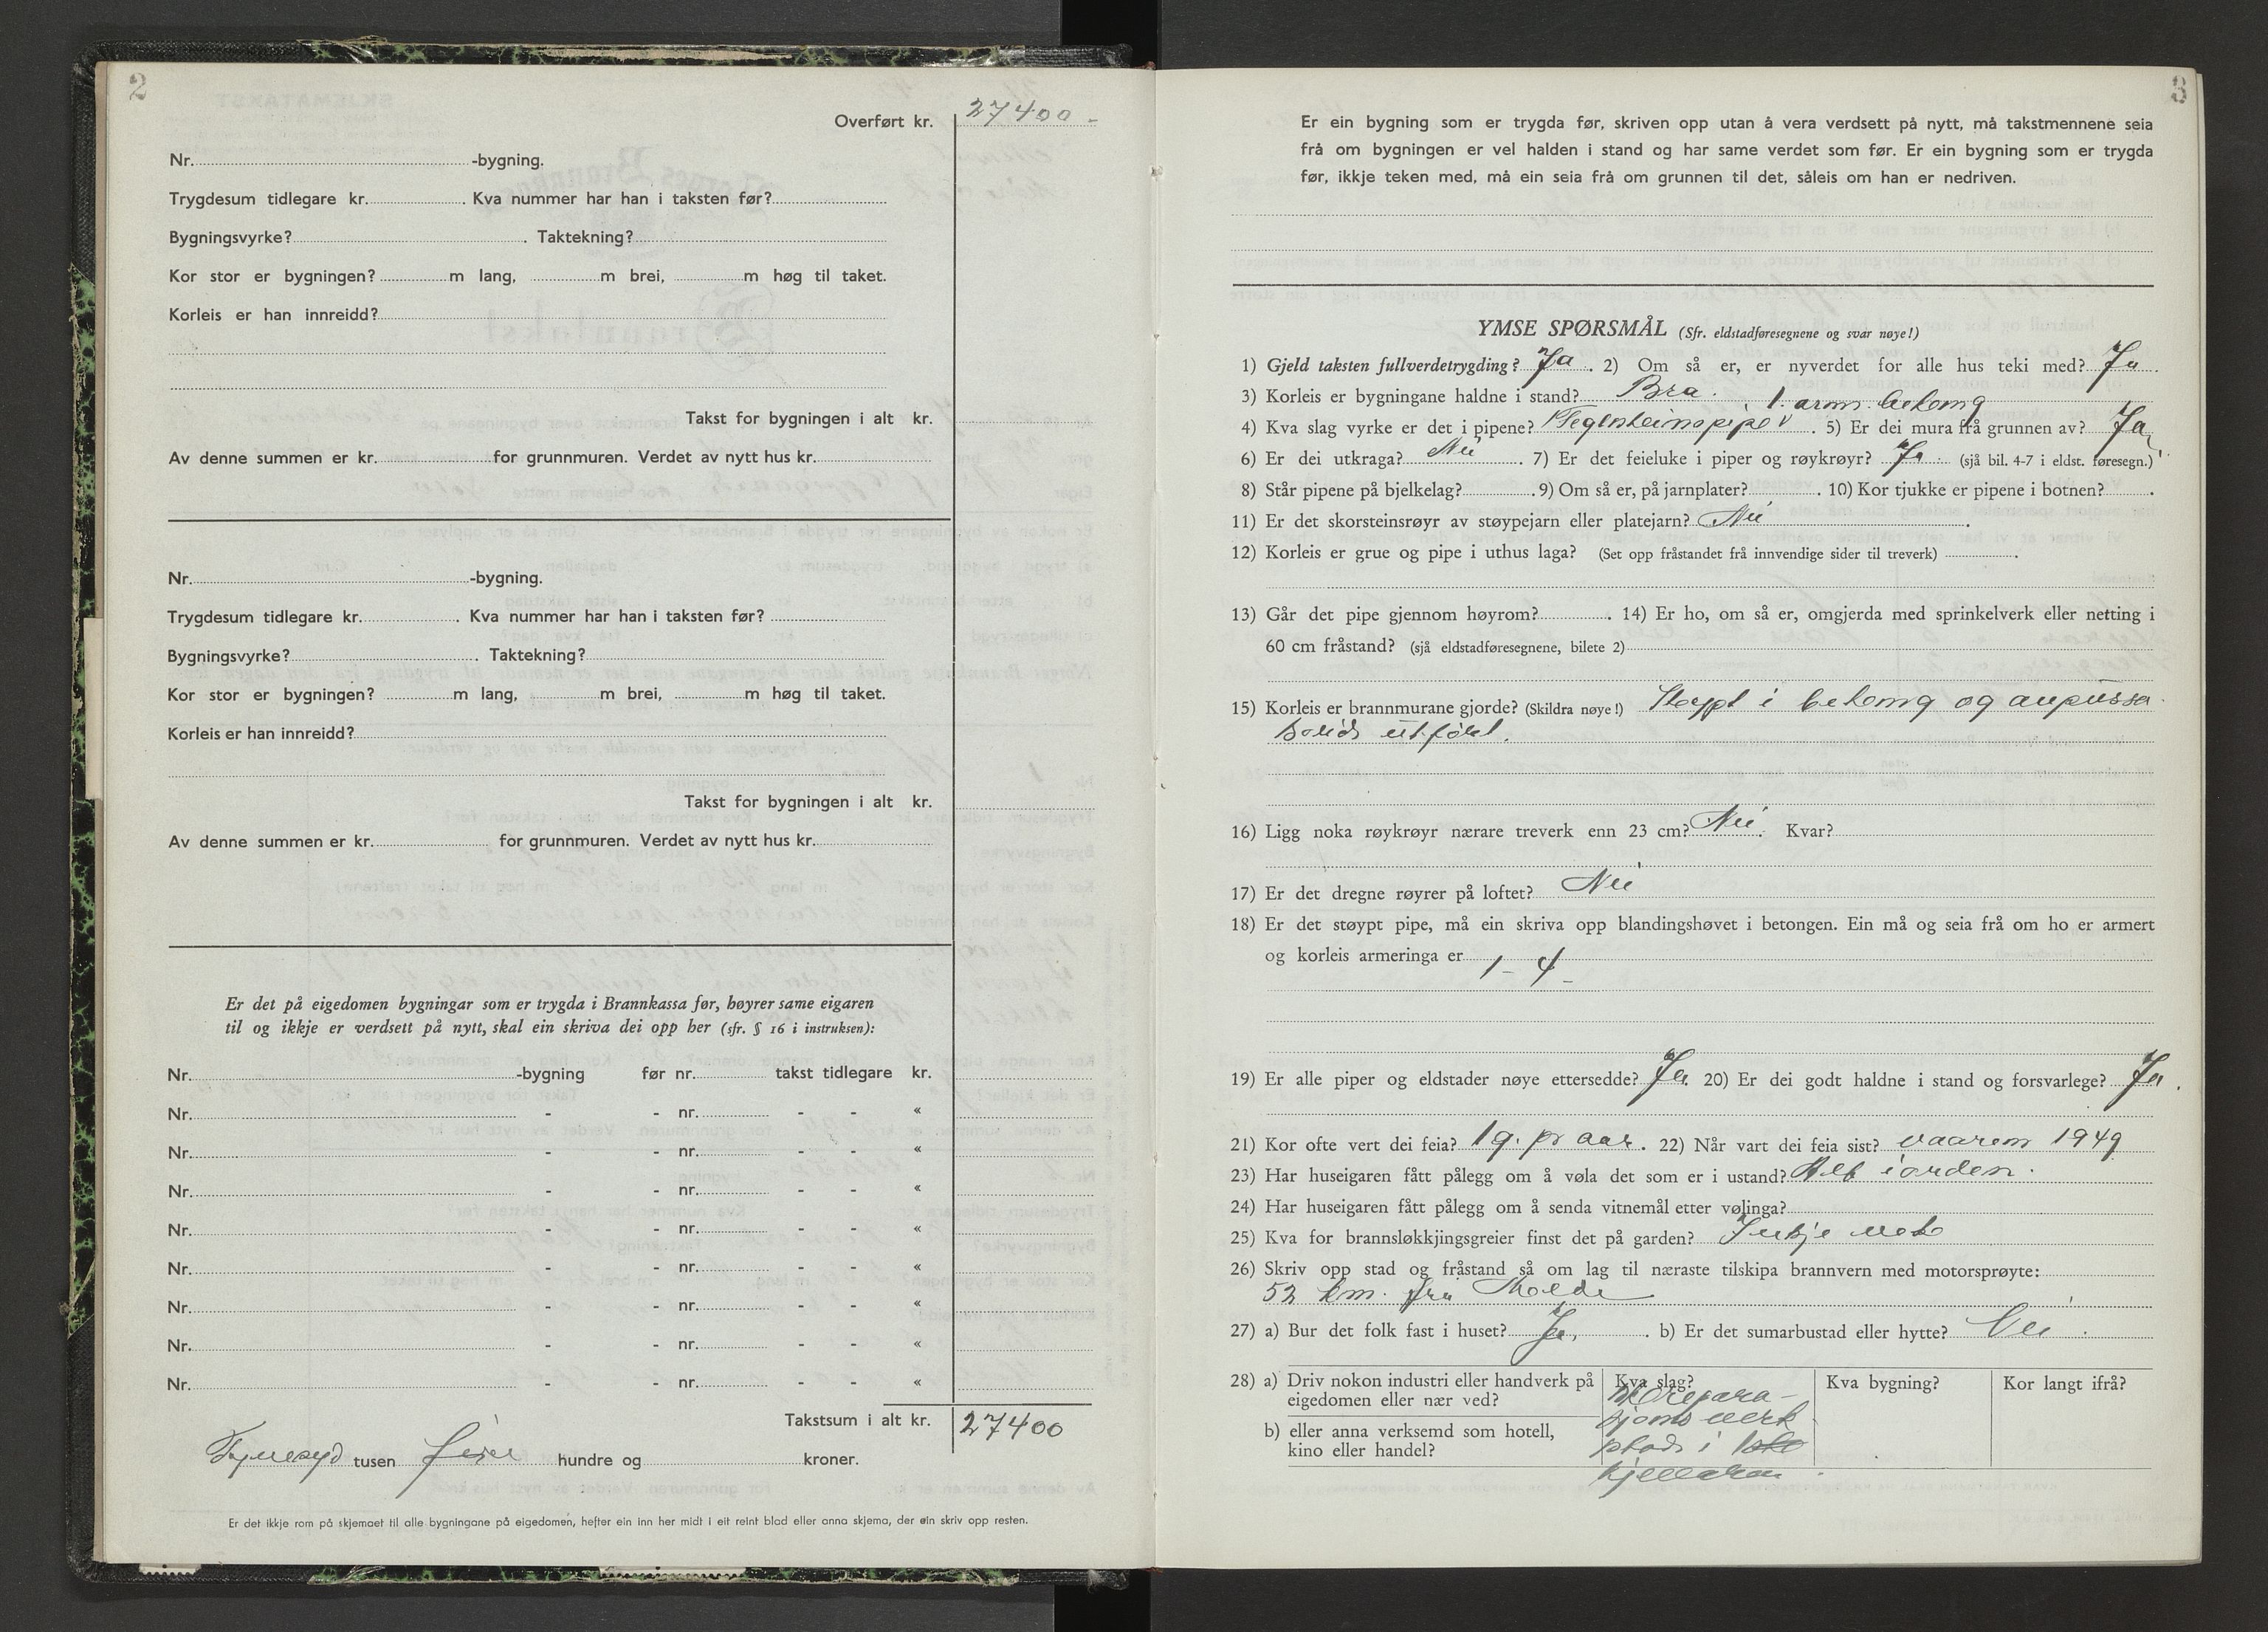 2
Overført kr. 27400 -
Nr. -bygning.
Trygdesum tidlegare kr. . Kva nummer har han i taksten før?
Bygningsvyrke? . Taktekning?
Kor stor er bygningen? m lang, m brei, m høg til taket.
Korleis er han innreidd?
Takst for bygningen i alt kr.
Av denne summen er kr. for grunnmuren. Verdet av nytt hus kr.
Nr. -bygning.
Trygdesum tidlegare kr. . Kva nummer har han i taksten før?
Bygningsvyrke? . Taktekning?
Kor stor er bygningen? m lang, m brei, m høg til taket.
Korleis er han innreidd?
Takst for bygningen i alt kr.
Av denne summen er kr. for grunnmuren. Verdet av nytt hus kr.
Er det på eigedomen bygningar som er trygda i Brannkassa før, høyrer same eigaren
til og ikkje er verdsett på nytt, skal ein skriva dei opp her (sfr. § 16 i instruksen):
Nr. -bygning før nr. takst tidlegare kr.
Nr. - - nr. - - «
Nr. - - nr. - - «
Nr. - - nr. - - «
Nr. - - nr. - - «
Nr. - - nr. - - «
Nr. - - nr. - - «
Nr. - - nr. - - «
Nr. - - nr. - - «
Takstsum i alt kr. 27400
tusen hundre og kroner.
Er det ikkje rom på skjemaet til alle bygningane på eigedomen, hefter ein inn her midt i eit reint blad eller anna skjema, der ein skriv opp resten.
3
Er ein bygning som er trygda før, skriven opp utan å vera verdsett på nytt, må takstmennene seia
frå om bygningen er vel halden i stand og har same verdet som før. Er ein bygning som er trygda
før, ikkje teken med, må ein seia frå om grunnen til det, såleis om han er nedriven.
YMSE SPØRSMÅL (Sfr. eldstadføresegnene og svar nøye!)
1) Gjeld taksten fullverdetrygding? Ja . 2) Om så er, er nyverdet for alle hus teki med? Ja .
3) Korleis er bygningane haldne i stand? Bra. 1. arm. betong
4) Kva slag vyrke er det i pipene? 1 Teglsteinspipe . 5) Er dei mura frå grunnen av? Ja
6) Er dei utkraga? Nei . 7) Er det feieluke i piper og røykrøyr? Ja . (sjå bil. 4-7 i eldst. føresegn.)
8) Står pipene på bjelkelag? . 9) Om så er, på jarnplater? . 10) Kor tjukke er pipene i botnen? .
11) Er det skorsteinsrøyr av støypejarn eller platejarn? Nei .
12) Korleis er grue og pipe i uthus laga? (Set opp fråstandet frå innvendige sider til treverk) .
13) Går det pipe gjennom høyrom? . 14) Er ho, om så er, omgjerda med sprinkelverk eller netting i
60 cm fråstand? (sjå eldstadføresegnene, bilete 2)
15) Korleis er brannmurane gjorde? (Skildra nøye!) Støypt i betong og anpussa
solid utført.
16) Ligg noka røykrøyr nærare treverk enn 23 cm? Nei . Kvar?
17) Er det dregne røyrer på loftet? Nei
18) Er det støypt pipe, må ein skriva opp blandingshøvet i betongen. Ein må og seia frå om ho er armert
og korleis armeringa er 1 - 4 -
19) Er alle piper og eldstader nøye ettersedde? Ja. 20) Er dei godt haldne i stand og forsvarlege? Ja .
21) Kor ofte vert dei feia? 1 g. pr aar . 22) Når vart dei feia sist? vaaren 1949
23) Har huseigaren fått pålegg om å vøla det som er i ustand? Alt i orden.
24) Har huseigaren fått pålegg om å senda vitnemål etter vølinga?
25) Kva for brannsløkkjingsgreier finst det på garden? Inkje
26) Skriv opp stad og fråstand så om lag til næraste tilskipa brannvern med motorsprøyte:
52 km. fra Molde
27) a) Bur det folk fast i huset? Ja, . b) Er det sumarbustad eller hytte? Nei .
28) a) Driv nokon industri eller handverk på
eigedomen eller nær ved?
Kva slag? Kva bygning? Kor langt ifrå?
b) eller anna verksemd som hotell,
kino eller handel?
repara-
sjons verk
stad i
kjellaren .